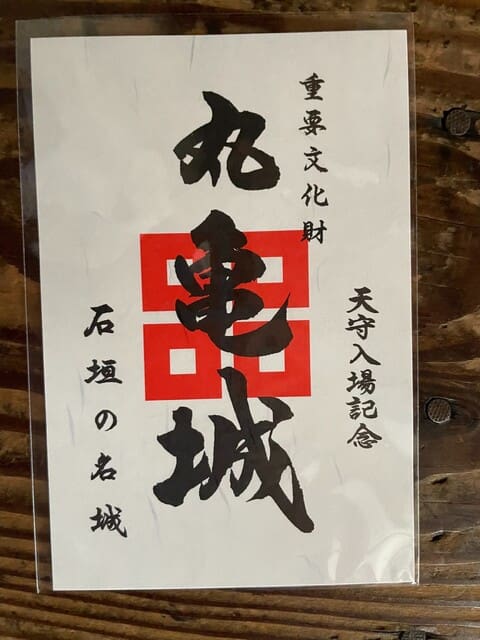 重要文化財
天守入場記念
丸亀城
石垣の名城